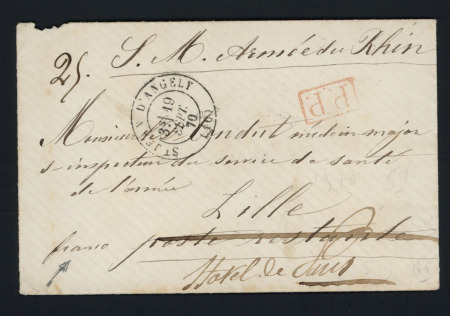 S. M. Armée du Rhin
25.
ST JEAN D'ANGELY
3E 19 SEPT. 70
P.P.
Monsieur Conduit médecin major
s-inspecteur du service de santé
de l'armée
Lille
franco poste restante
Hotel de